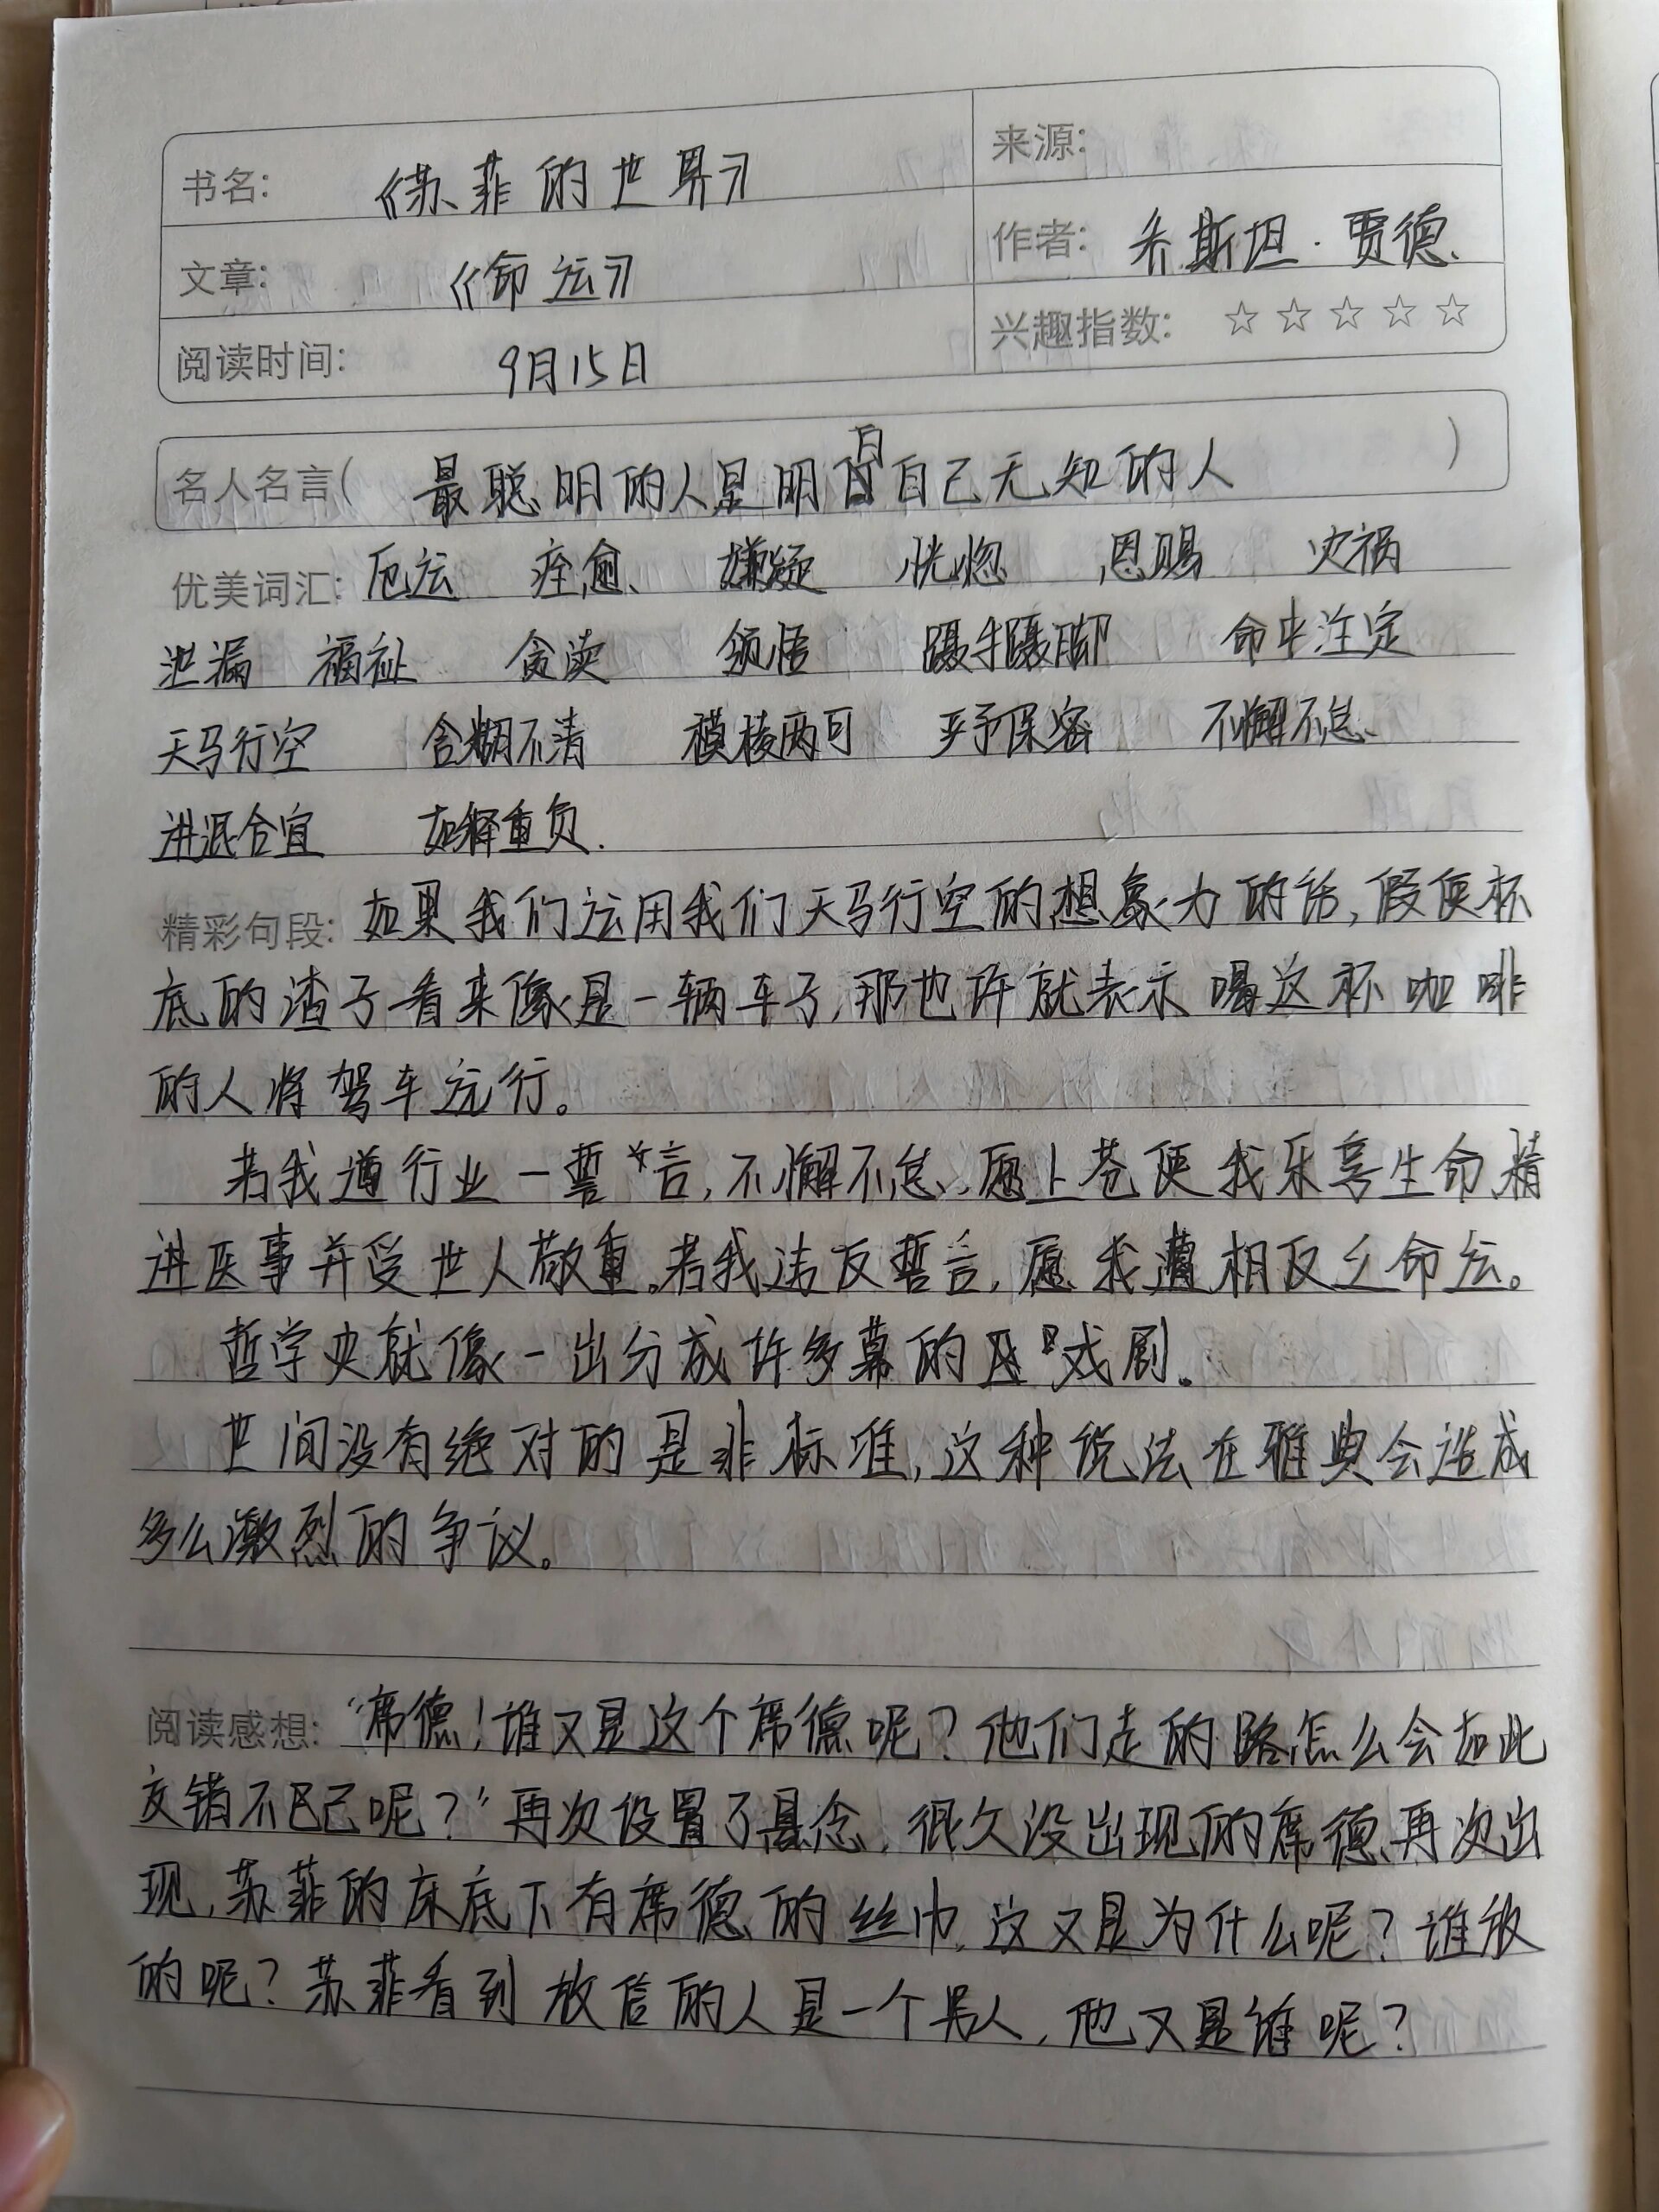 书名: 《苏菲的世界》
来源:
文章: 《命运》
作者: 乔斯坦·贾德
阅读时间: 9月15日
兴趣指数: ☆☆☆☆☆
名人名言( 最聪明的人是明白自己无知的人 )
优美词汇: 厄运 痊愈 嫌疑 恍惚 恩赐 灾祸
泄漏 福祉 贪渎 领悟 蹑手蹑脚 命中注定
天马行空 含糊不清 模棱两可 严予保密 不懈不怠
进退合宜 如释重负.
精彩句段: 如果我们运用我们天马行空的想象力的话,假使杯
底的渣子看来像是一辆车子,那也许就表示喝这杯咖啡
的人将驾车远行。
若我遵行业一誓言,不懈不怠,愿上苍使我乐享生命,精
进医事并受世人敬重。若我违反誓言,愿我遭相反之命运。
哲学史就像一出分成许多幕的戏剧。
世间没有绝对的是非标准,这种说法在雅典会造成
多么激烈的争议。
阅读感想: “席德!谁又是这个席德呢?他们走的路怎么会如此
交错不已呢?”再次设置了悬念,很久没出现的席德再次出
现,苏菲的床底下有席德的丝巾,这又是为什么呢?谁放
的呢?苏菲看到放信的人是一个男人,他又是谁呢?